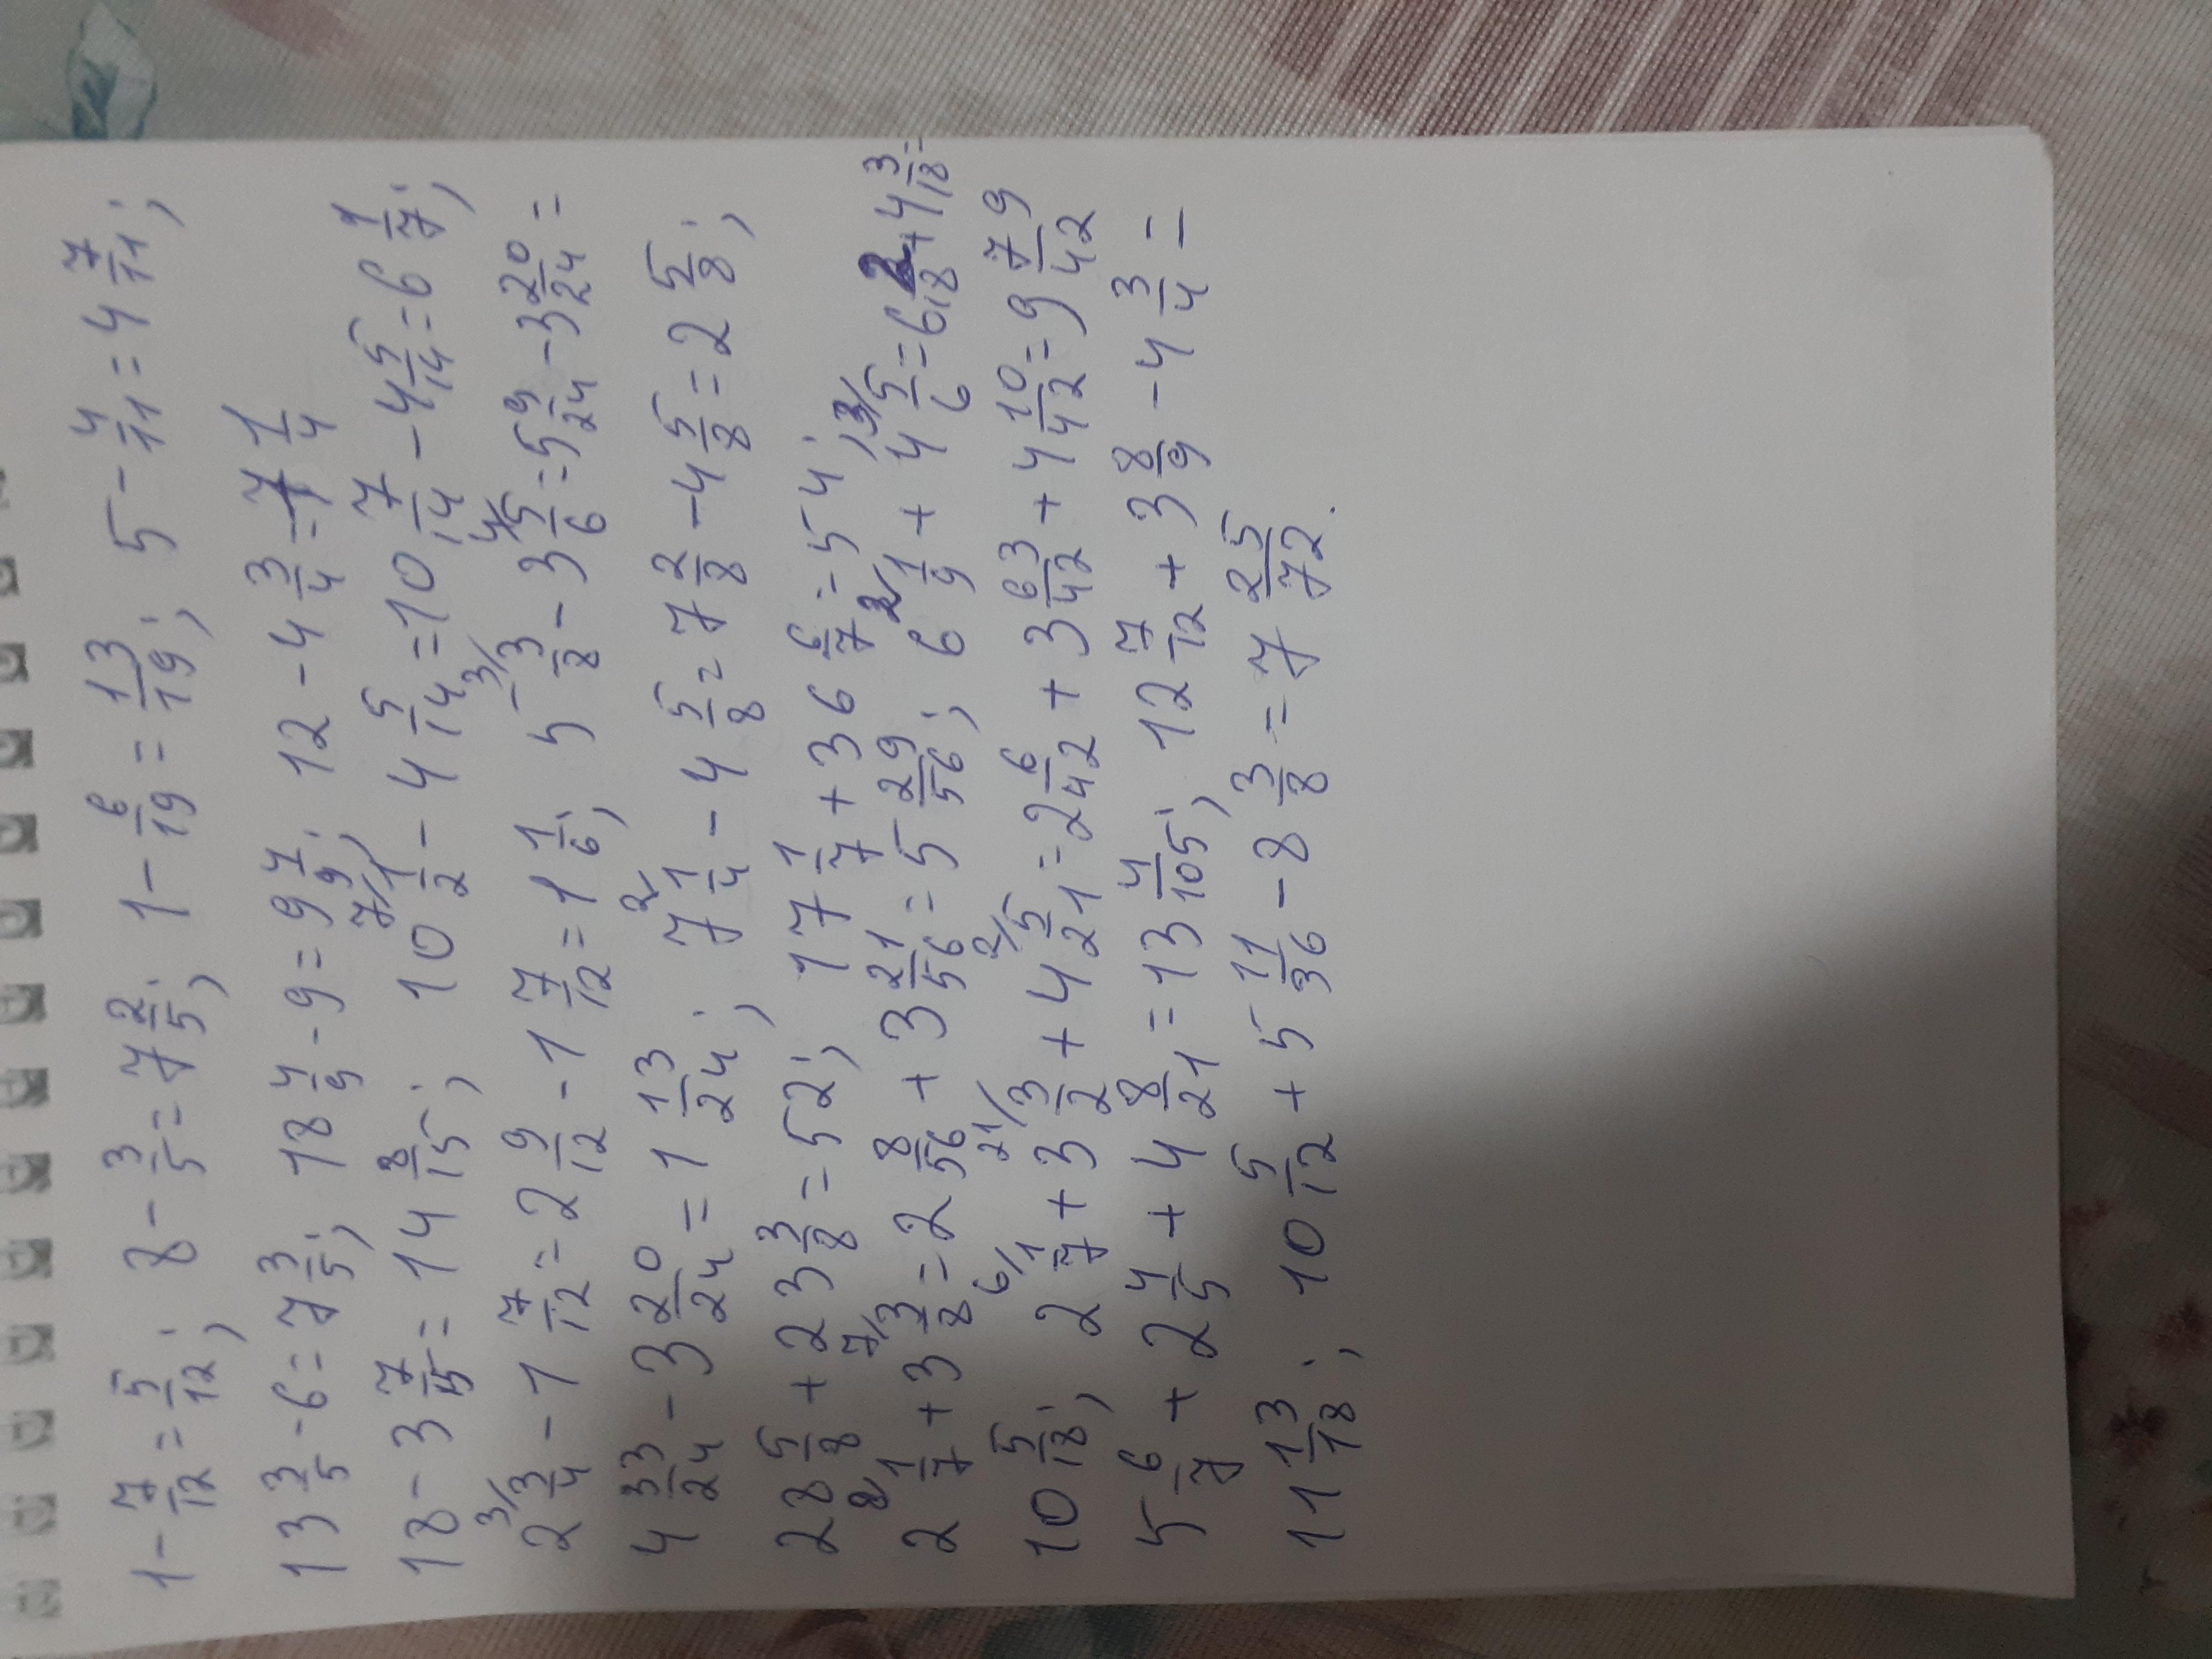 1 - 7/12 = 5/12; 8 - 3/5 = 7 2/5; 1 - 6/19 = 13/19; 5 - 4/11 = 4 7/11;
13 3/5 - 6 = 7 3/5; 18 4/9 - 9 = 9 4/9; 12 - 4 3/4 = 7 1/4
18 - 3 7/15 = 14 8/15; 10 7/1/2 - 4 5/14 = 10 7/14 - 4 5/14 = 6 1/7;
2 3/3/4 - 1 7/12 = 2 9/12 - 1 7/12 = 1 1/6; 5 3/3/8 - 3 4/5/6 = 5 9/24 - 3 20/24 =
4 33/24 - 3 20/24 = 1 13/24; 7 2/1/4 - 4 5/8 = 7 2/8 - 4 5/8 = 2 5/8;
28 5/8 + 23 3/8 = 52; 17 1/7 + 36 6/7 = 54;
2 8/1/7 + 3 7/3/8 = 2 8/56 + 3 21/56 = 5 29/56; 6 2/1/9 + 4 3/5/6 = 6 2/18 + 4 3/18 =
10 5/18; 2 6/1/7 + 3 21/3/2 + 4 2/5/21 = 2 6/42 + 3 63/42 + 4 10/42 = 9 79/42
5 6/7 + 2 4/5 + 4 8/21 = 13 4/105; 12 7/12 + 3 8/9 - 4 3/4 =
11 13/18; 10 5/12 + 5 11/36 - 8 3/8 = 7 25/72.